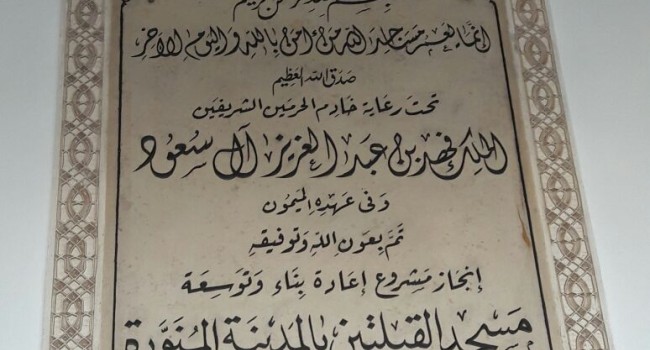 بسم الله الرحمن الرحيم
إنما يعمر مساجد الله من آمن بالله واليوم الآخر
صدق الله العظيم
تحت رعاية خادم الحرمين الشريفين
الملك فهد بن عبد العزيز آل سعود
وفي عهده الميمون
تم بعون الله وتوفيقه
إنجاز مشروع إعادة بناء وتوسعة
مسجد القبلتين بالمدينة المنورة